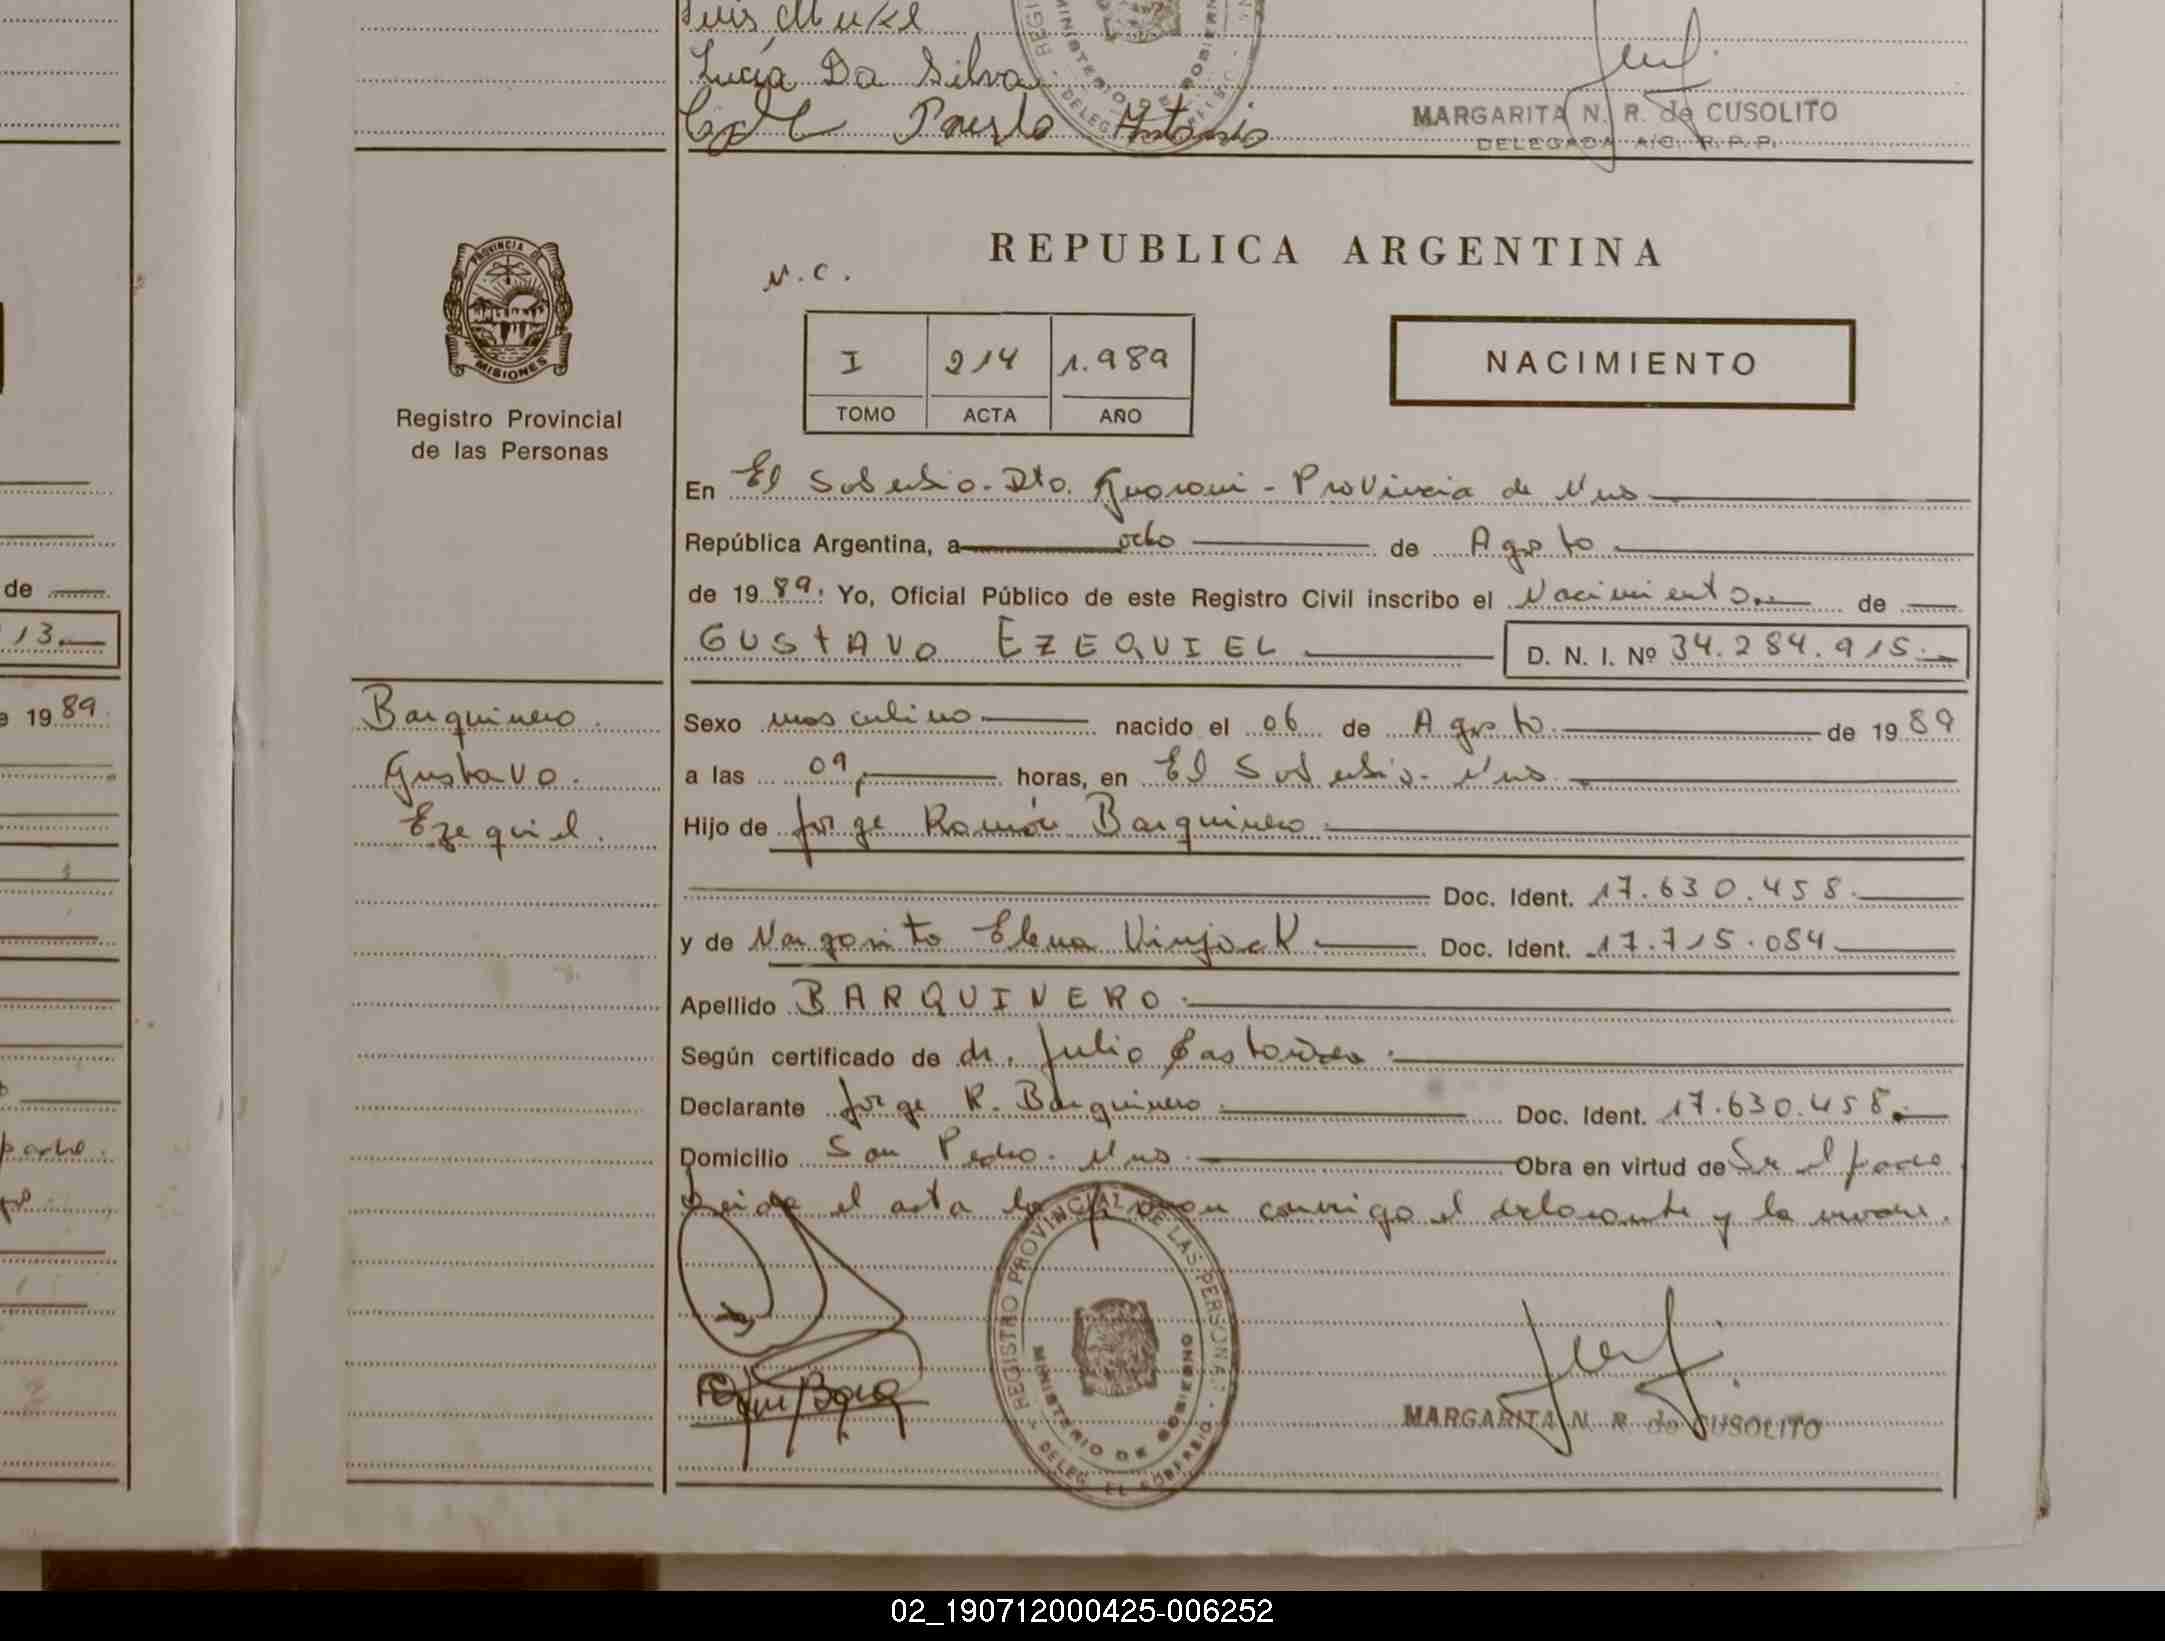 Luis
Lucía Da Silva
MARGARITA N. R. de CUSOLITO
DELEGADA A/C. R.P.P.
PROVINCIA DE MISIONES
Registro Provincial
de las Personas
REPUBLICA ARGENTINA
N.C.
I 214 1.989
TOMO ACTA AÑO
NACIMIENTO
En El Soberbio - Dto. Guarani - Provincia de Mnes
República Argentina, a ocho de Agosto
de 1989. Yo, Oficial Público de este Registro Civil inscribo el Nacimiento de
GUSTAVO EZEQUIEL D. N. I. Nº 34.284.915.
Barquinero
Gustavo.
Ezequiel.
Sexo masculino nacido el 06 de Agosto de 1989
a las 09, horas, en El Soberbio - Mnes.
Hijo de Jorge Ramón Barquinero
Doc. Ident. 17.630.458.
y de Margarita Elena Doc. Ident. 17.715.084
Apellido BARQUINERO.
Según certificado de dr. Julio
Declarante Jorge R. Barquinero Doc. Ident. 17.630.458.
Domicilio San Pedro. Mnes. Obra en virtud de Ser el padre
Leida el acta la firman conmigo el declarante y la madre.
REGISTRO PROVINCIAL DE LAS PERSONAS
MINISTERIO DE GOBIERNO
DELEG. EL SOBERBIO
MARGARITA N. R. de CUSOLITO
de
13.
de 1989
02_190712000425-006252